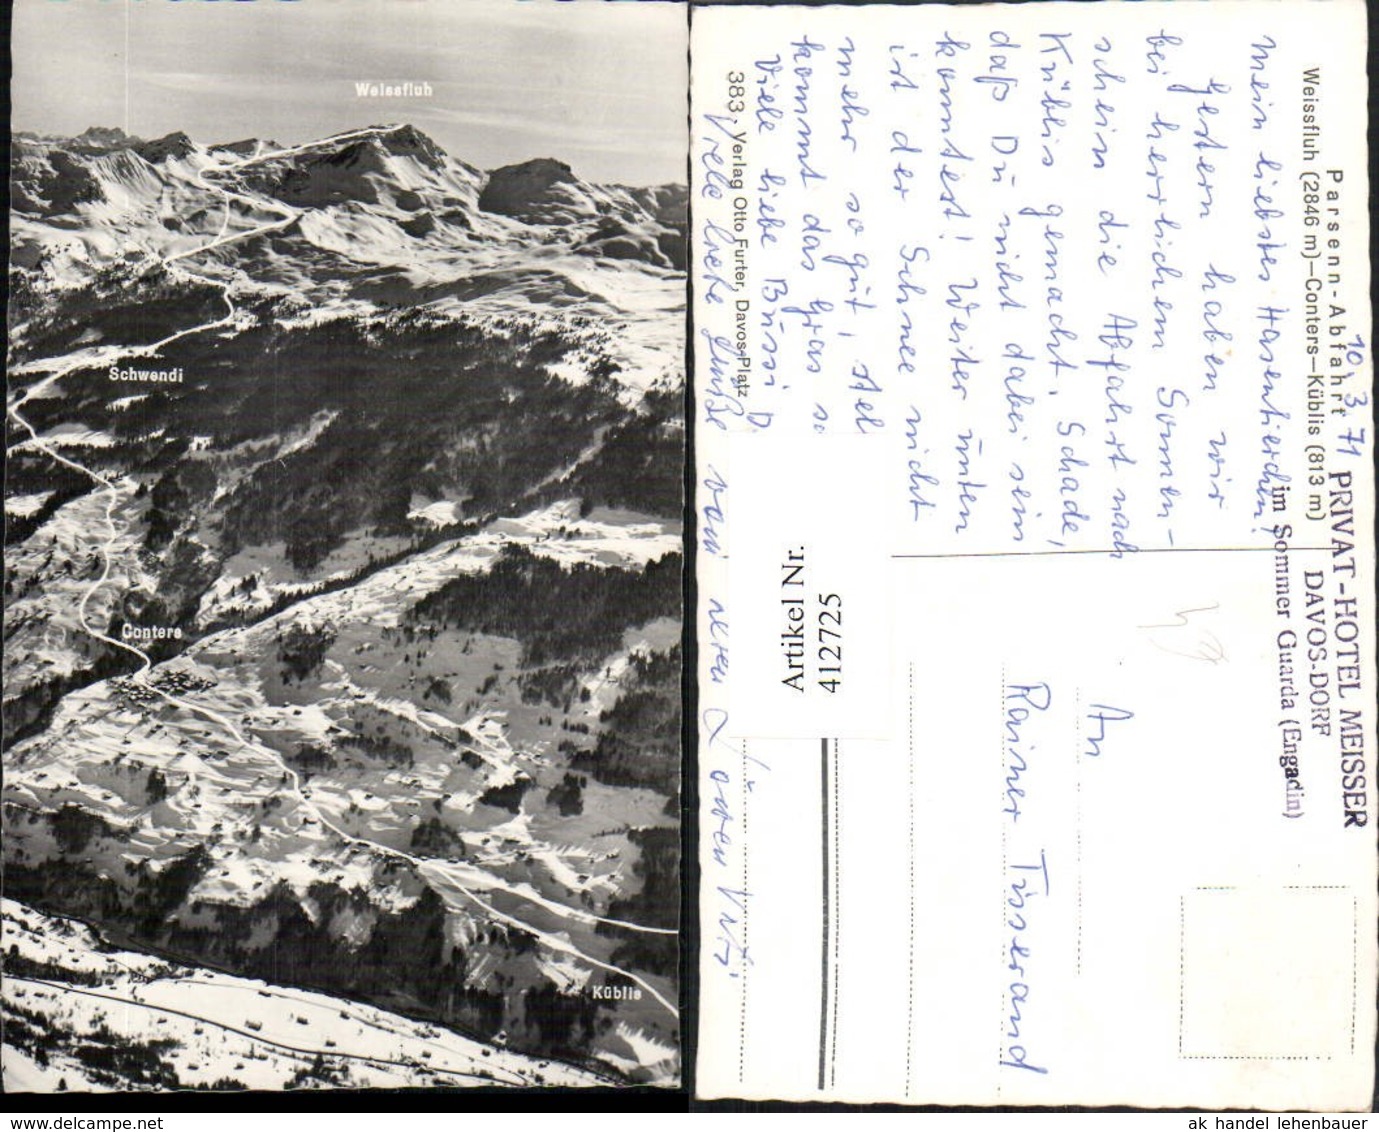 Weissfluh
Schwendi
Conters
Küblis
Parsenn-Abfahrt
Weissfluh (2846 m)—Conters—Küblis (813 m)
10.3.71
PRIVAT-HOTEL MEISSER
DAVOS-DORF
im Sommer Guarda (Engadin)
Mein liebstes Hasentierchen!
Gestern haben wir
bei herrlichem Sonnen-
schein die Abfahrt nach
Küblis gemacht. Schade,
daß Du nicht dabei sein
konntest! Weiter unten
ist der Schnee nicht
mehr so gut,
kommt das Gras
Viele liebe Bussi
Viele liebe Grüße von
383, Verlag Otto Furter, Davos-Platz
An
Rainer Tisserand
Artikel Nr.
412725
ak handel lehenbauer